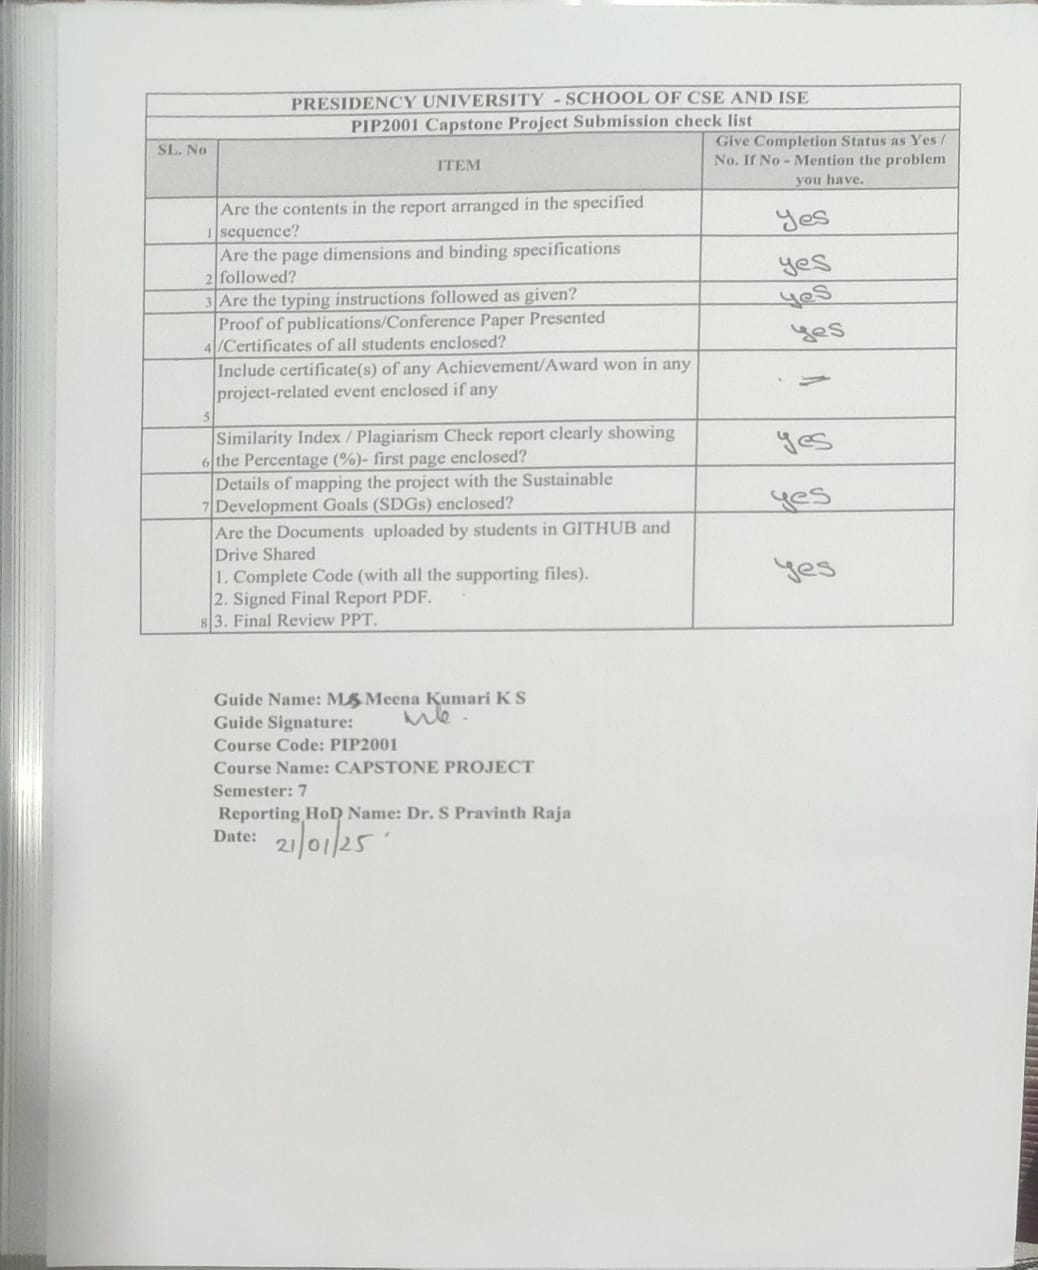 PRESIDENCY UNIVERSITY - SCHOOL OF CSE AND ISE
PIP2001 Capstone Project Submission check list
SL. No
ITEM
Give Completion Status as Yes /
No. If No - Mention the problem
you have.
Are the contents in the report arranged in the specified
1 sequence?
yes
Are the page dimensions and binding specifications
2 followed?
yes
3 Are the typing instructions followed as given?
yes
Proof of publications/Conference Paper Presented
4 /Certificates of all students enclosed?
yes
Include certificate(s) of any Achievement/Award won in any
project-related event enclosed if any
5
Similarity Index / Plagiarism Check report clearly showing
6 the Percentage (%)- first page enclosed?
yes
Details of mapping the project with the Sustainable
7 Development Goals (SDGs) enclosed?
yes
Are the Documents uploaded by students in GITHUB and
Drive Shared
1. Complete Code (with all the supporting files).
2. Signed Final Report PDF.
8 3. Final Review PPT.
yes
Guide Name: Ms Meena Kumari K S
Guide Signature:
Course Code: PIP2001
Course Name: CAPSTONE PROJECT
Semester: 7
Reporting HoD Name: Dr. S Pravinth Raja
Date: 21/01/25